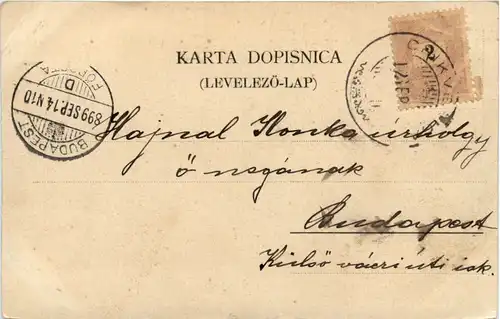 KARTA DOPISNICA
(LEVELEZŐ-LAP)
BUDAPEST
899 SEP.14 N1D
D
Hajnal Ilonka úrhölgy
ő nsgának
Budapest
Külső váczi úti isk.